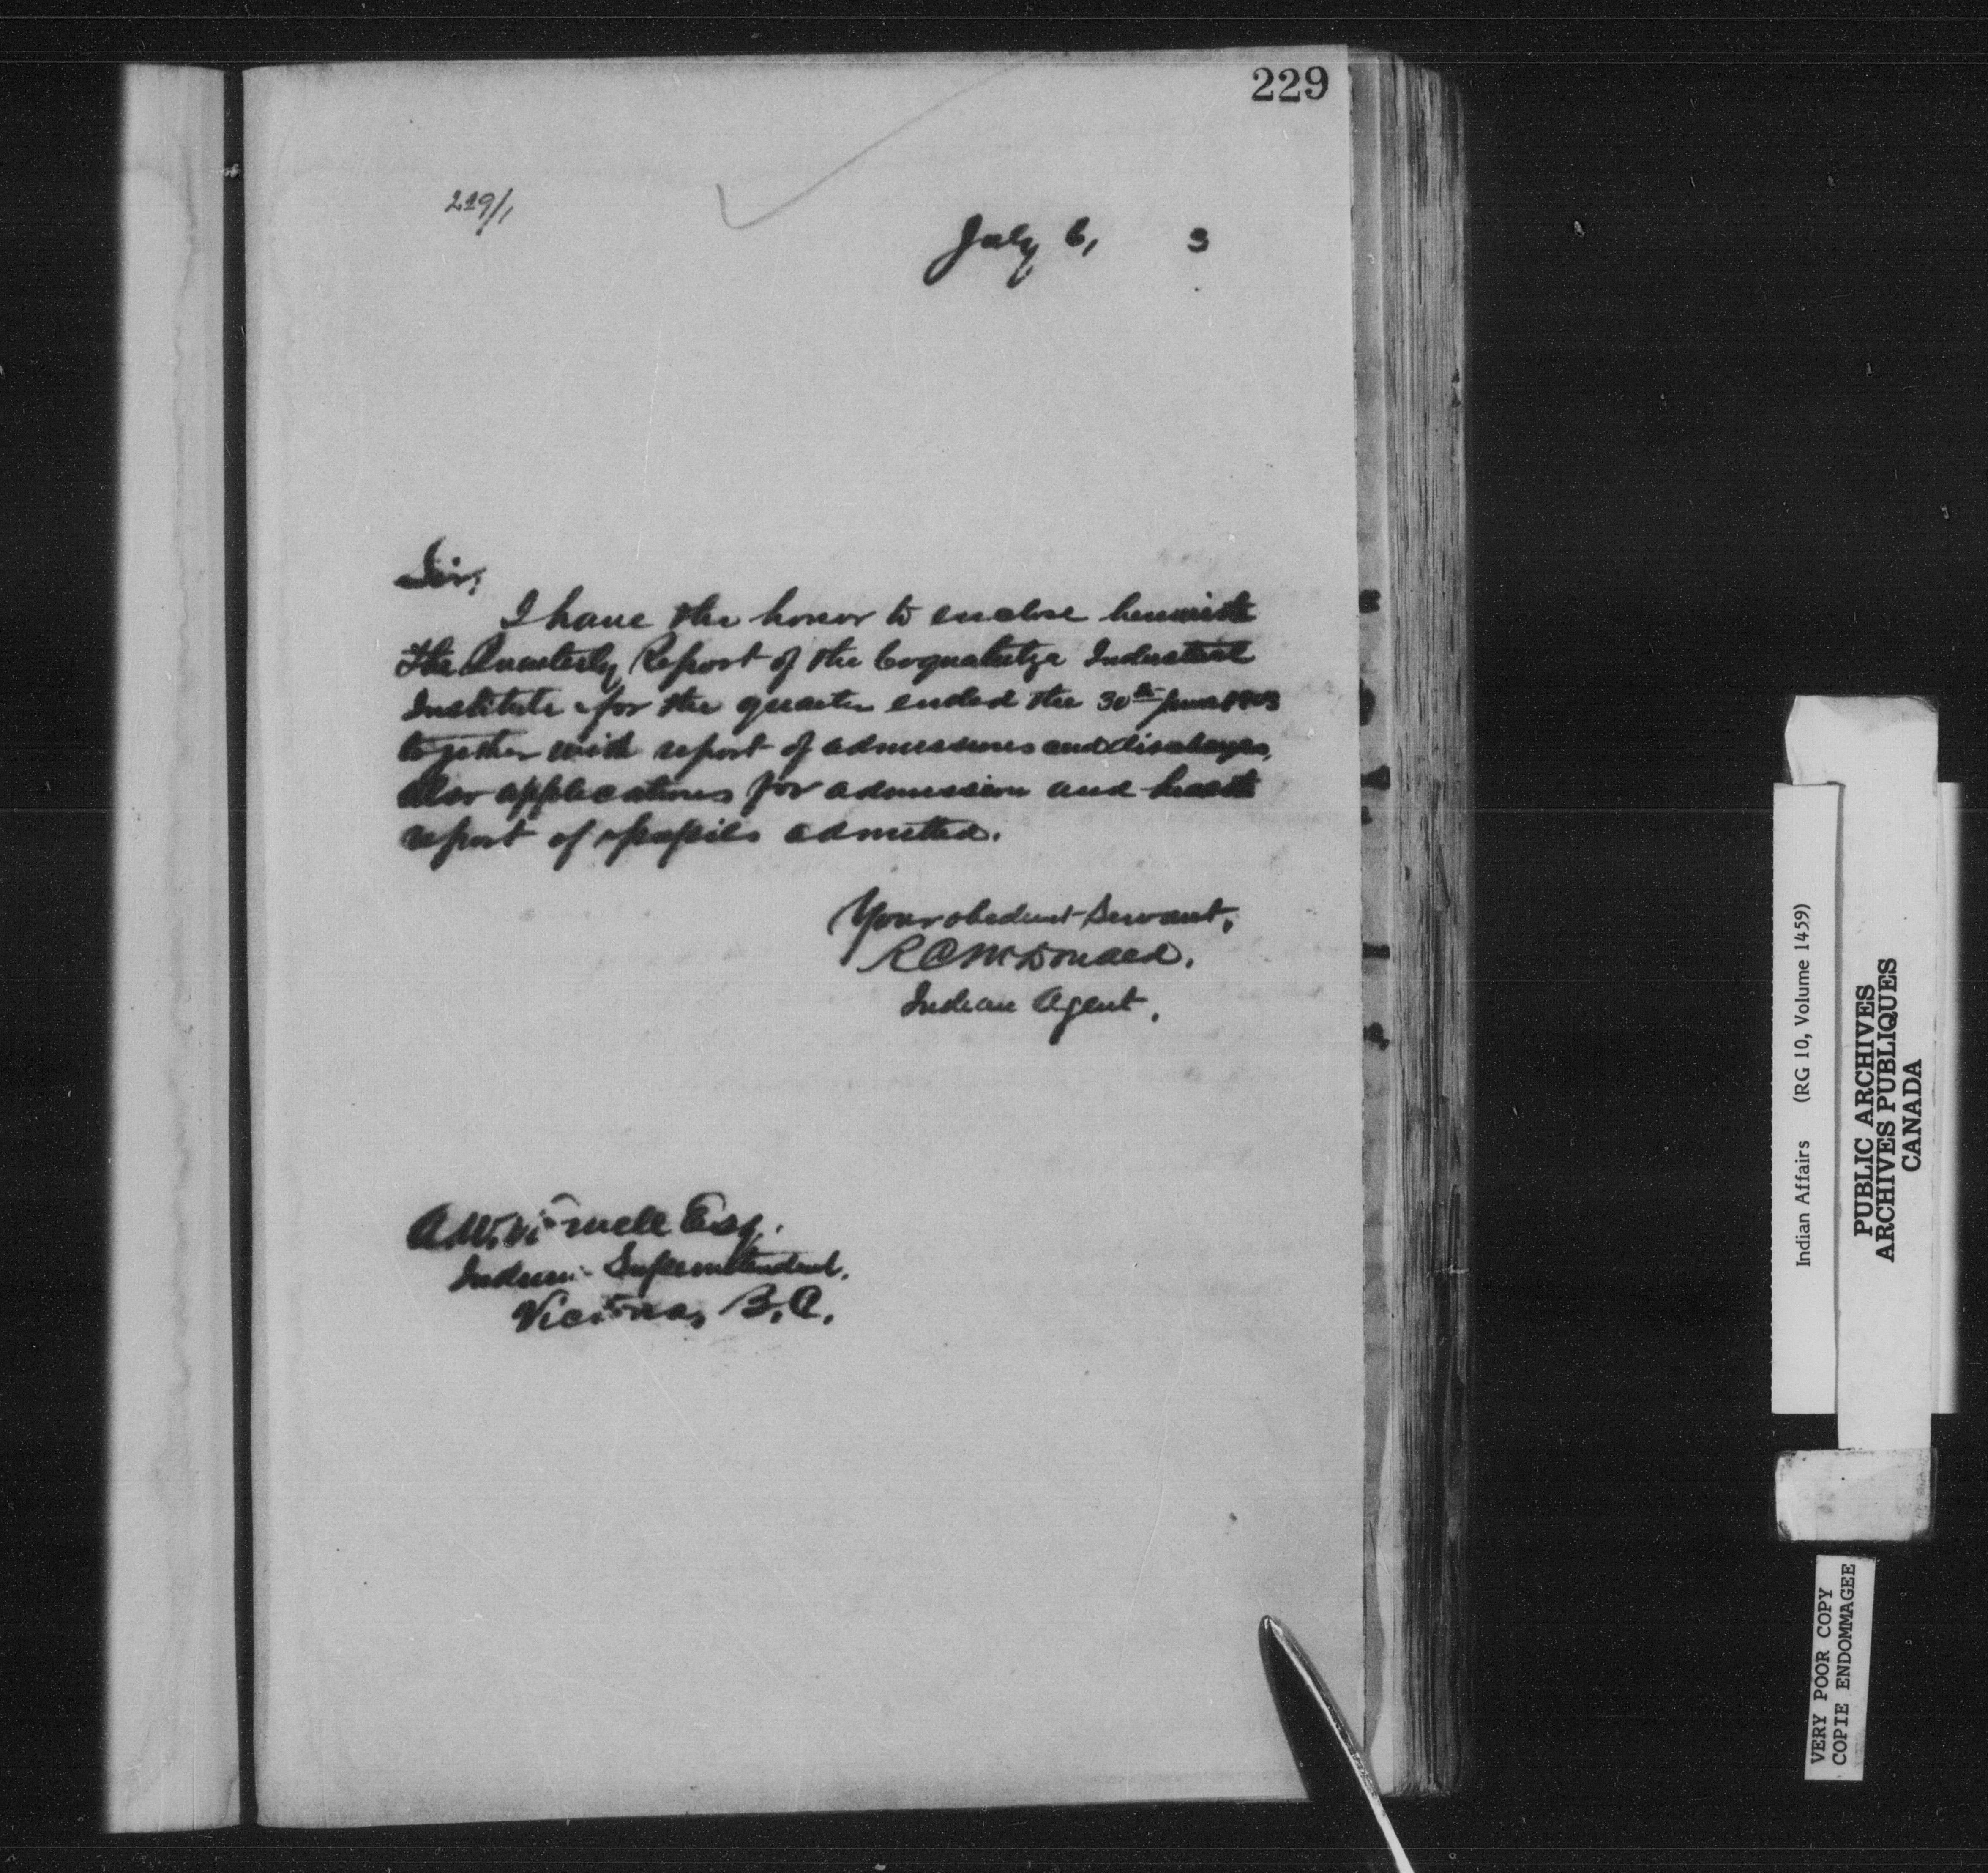 229
229/1
July 6, 3
Sir,
I have the honor to enclose herewith
the Quarterly Report of the Coqualeetza Industrial
Institute for the quarter ended the 30th June 1903
together with report of admissions and discharges,
also applications for admission and health
report of pupils admitted.
Your obedient Servant,
R C McDonald.
Indian Agent.
A.W. Vowell Esq.
Indian Superintendent.
Victoria, B.C.
Indian Affairs (RG 10, Volume 1459)
PUBLIC ARCHIVES
ARCHIVES PUBLIQUES
CANADA
VERY POOR COPY
COPIE ENDOMMAGEE